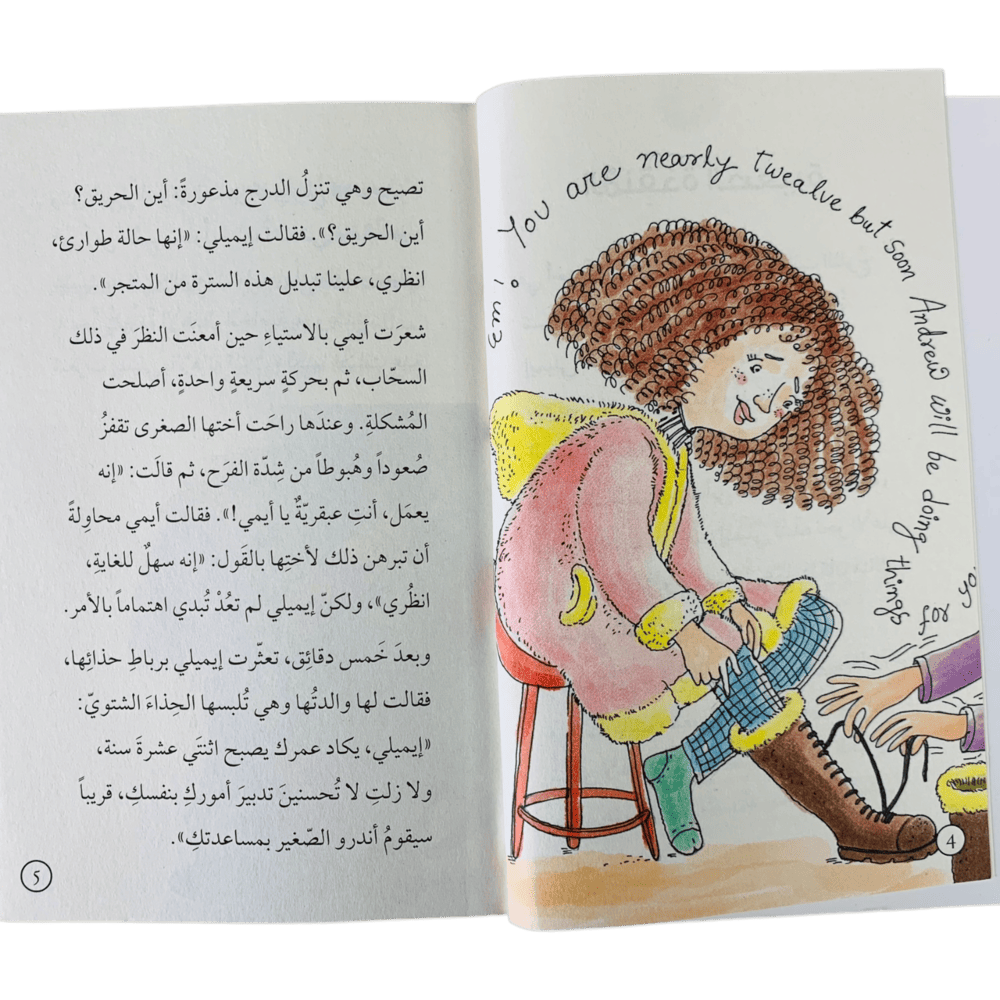 You are nearly twealve but soon Andrew will be doing things
4
تصيح وهي تنزلُ الدرج مذعورةً: أين الحريق؟
أين الحريق؟». فقالت إيميلي: «إنها حالة طوارئ،
انظري، علينا تبديل هذه السترة من المتجر».
شعرَت أيمي بالاستياءِ حين أمعنَت النظرَ في ذلك
السحّاب، ثم بحركةٍ سريعةٍ واحدةٍ، أصلحت
المُشكلةِ. وعندَها راحَت أختها الصغرى تقفزُ
صُعوداً وهُبوطاً من شِدّة الفرَح، ثم قالَت: «إنه
يعمَل، أنتِ عبقريّةٌ يا أيمي!». فقالت أيمي محاوِلةً
أن تبرهن ذلك لأختِها بالقَول: «إنه سهلٌ للغايةِ،
انظُري»، ولكنّ إيميلي لم تعُدْ تُبدي اهتماماً بالأمر.
وبعدَ خَمس دقائق، تعثّرت إيميلي برباطِ حذائِها،
فقالت لها والدتُها وهي تُلبسها الحِذاءَ الشتويّ:
«إيميلي، يكاد عمرك يصبح اثنتَي عشرةَ سنة،
ولا زلتِ لا تُحسنينَ تدبيرَ أموركِ بنفسكِ، قريباً
سيقومُ أندرو الصّغير بمساعدتكِ».
٥